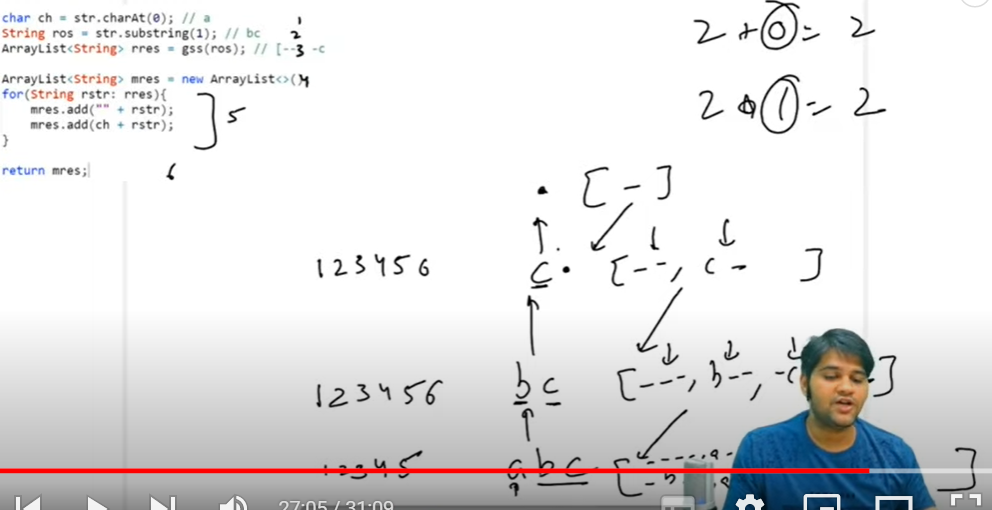 char ch = str.charAt(0); // a 1
String ros = str.substring(1); // bc 2
ArrayList<String> rres = gss(ros); // [--3 -c
ArrayList<String> mres = new ArrayList<>() 4
for(String rstr: rres){
mres.add("" + rstr);
mres.add(ch + rstr);
} 5
return mres; 6
2 + 0 = 2
2 * 1 = 2
. [ - ]
1 2 3 4 5 6 c . [ - -, c - ]
1 2 3 4 5 6 b c [ - - -, b - -, - c ]
1 2 3 4 5 a b c [ ]
27:05 / 31:09